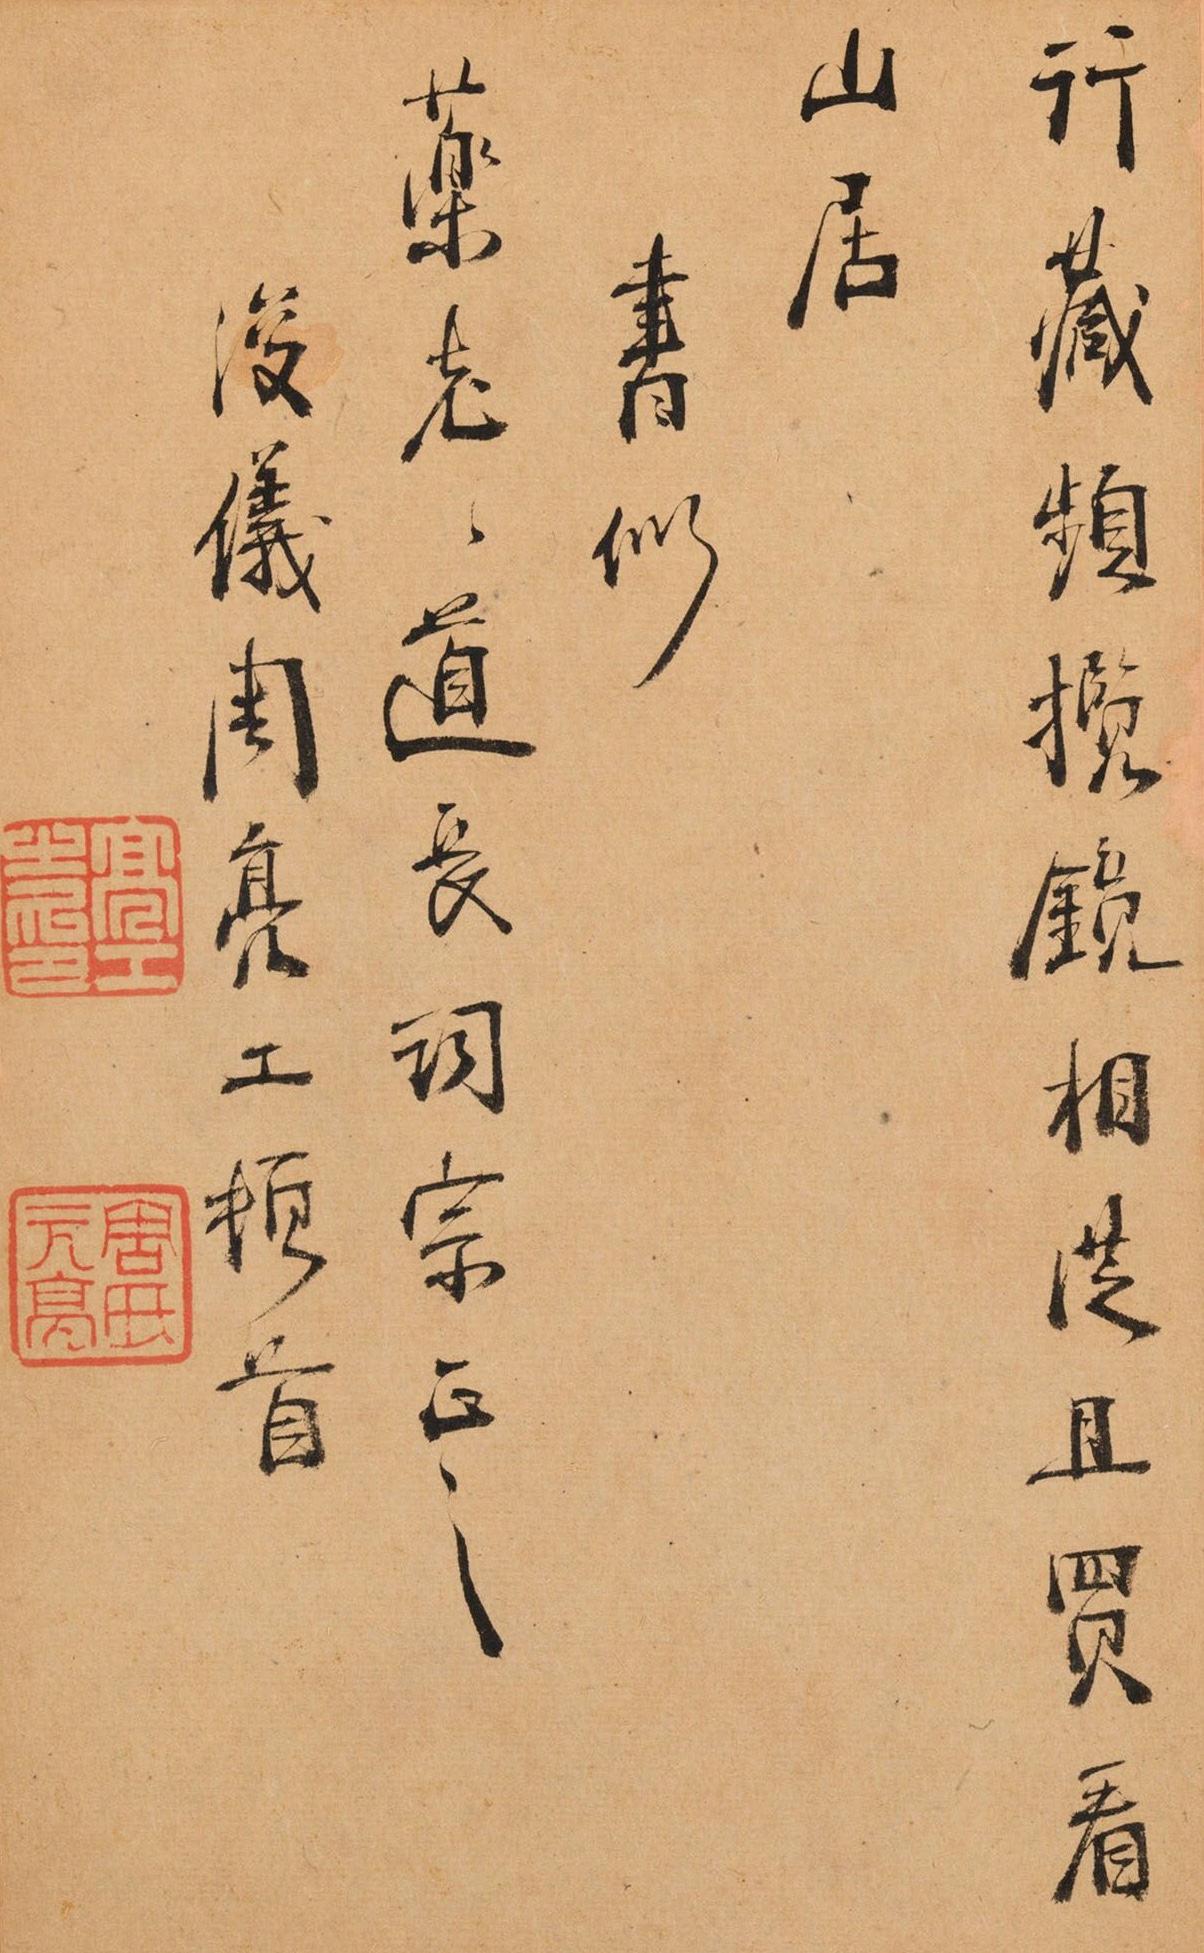 行藏頻攬鏡相從且買看
山居
書似
藥老〻道長詞宗正之
浚儀周亮工頓首
亮工
周元亮